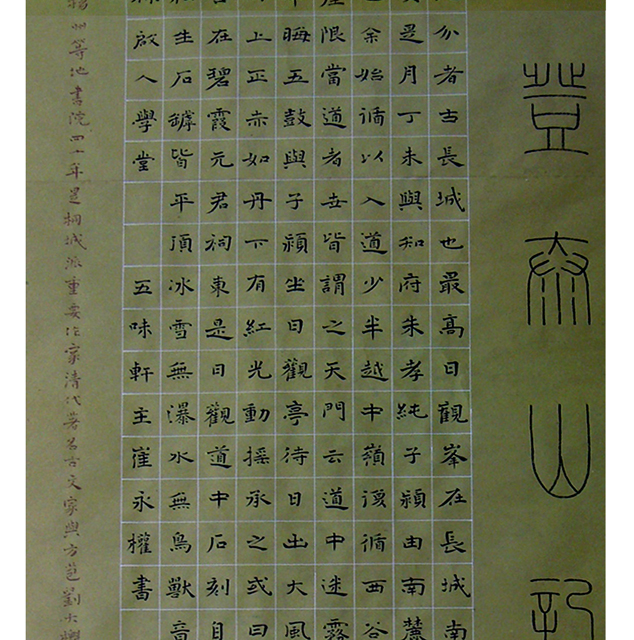 登泰山記
分者古長城也最高日觀峯在長城南
是月丁未與知府朱孝純子潁由南麓
余始循以入道少半越中嶺復循西谷
崖限當道者世皆謂之天門云道中迷霧
晦五鼓與子潁坐日觀亭待日出大風
上正赤如丹下有紅光動搖承之或曰
在碧霞元君祠東是日觀道中石刻自
生石罅皆平頂冰雪無瀑水無鳥獸音
啟入學堂 五味軒主崔永權書
揚州等地書院四十年是桐城派重要作家清代著名古文家與方苞劉大櫆